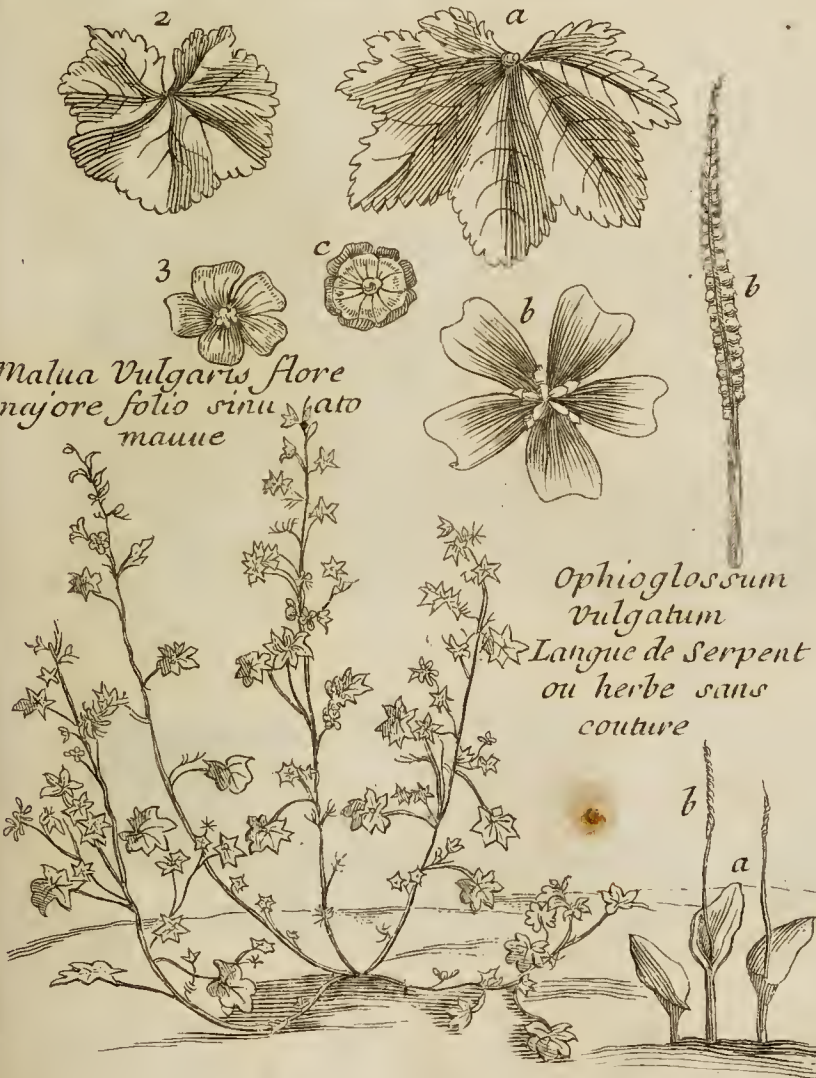 2
a
b
3
c
b
Malua Vulgaris flore
majore folio sinu ato
mauue
Ophioglossum
vulgatum
Langue de Serpent
ou herbe sans
couture
b
a